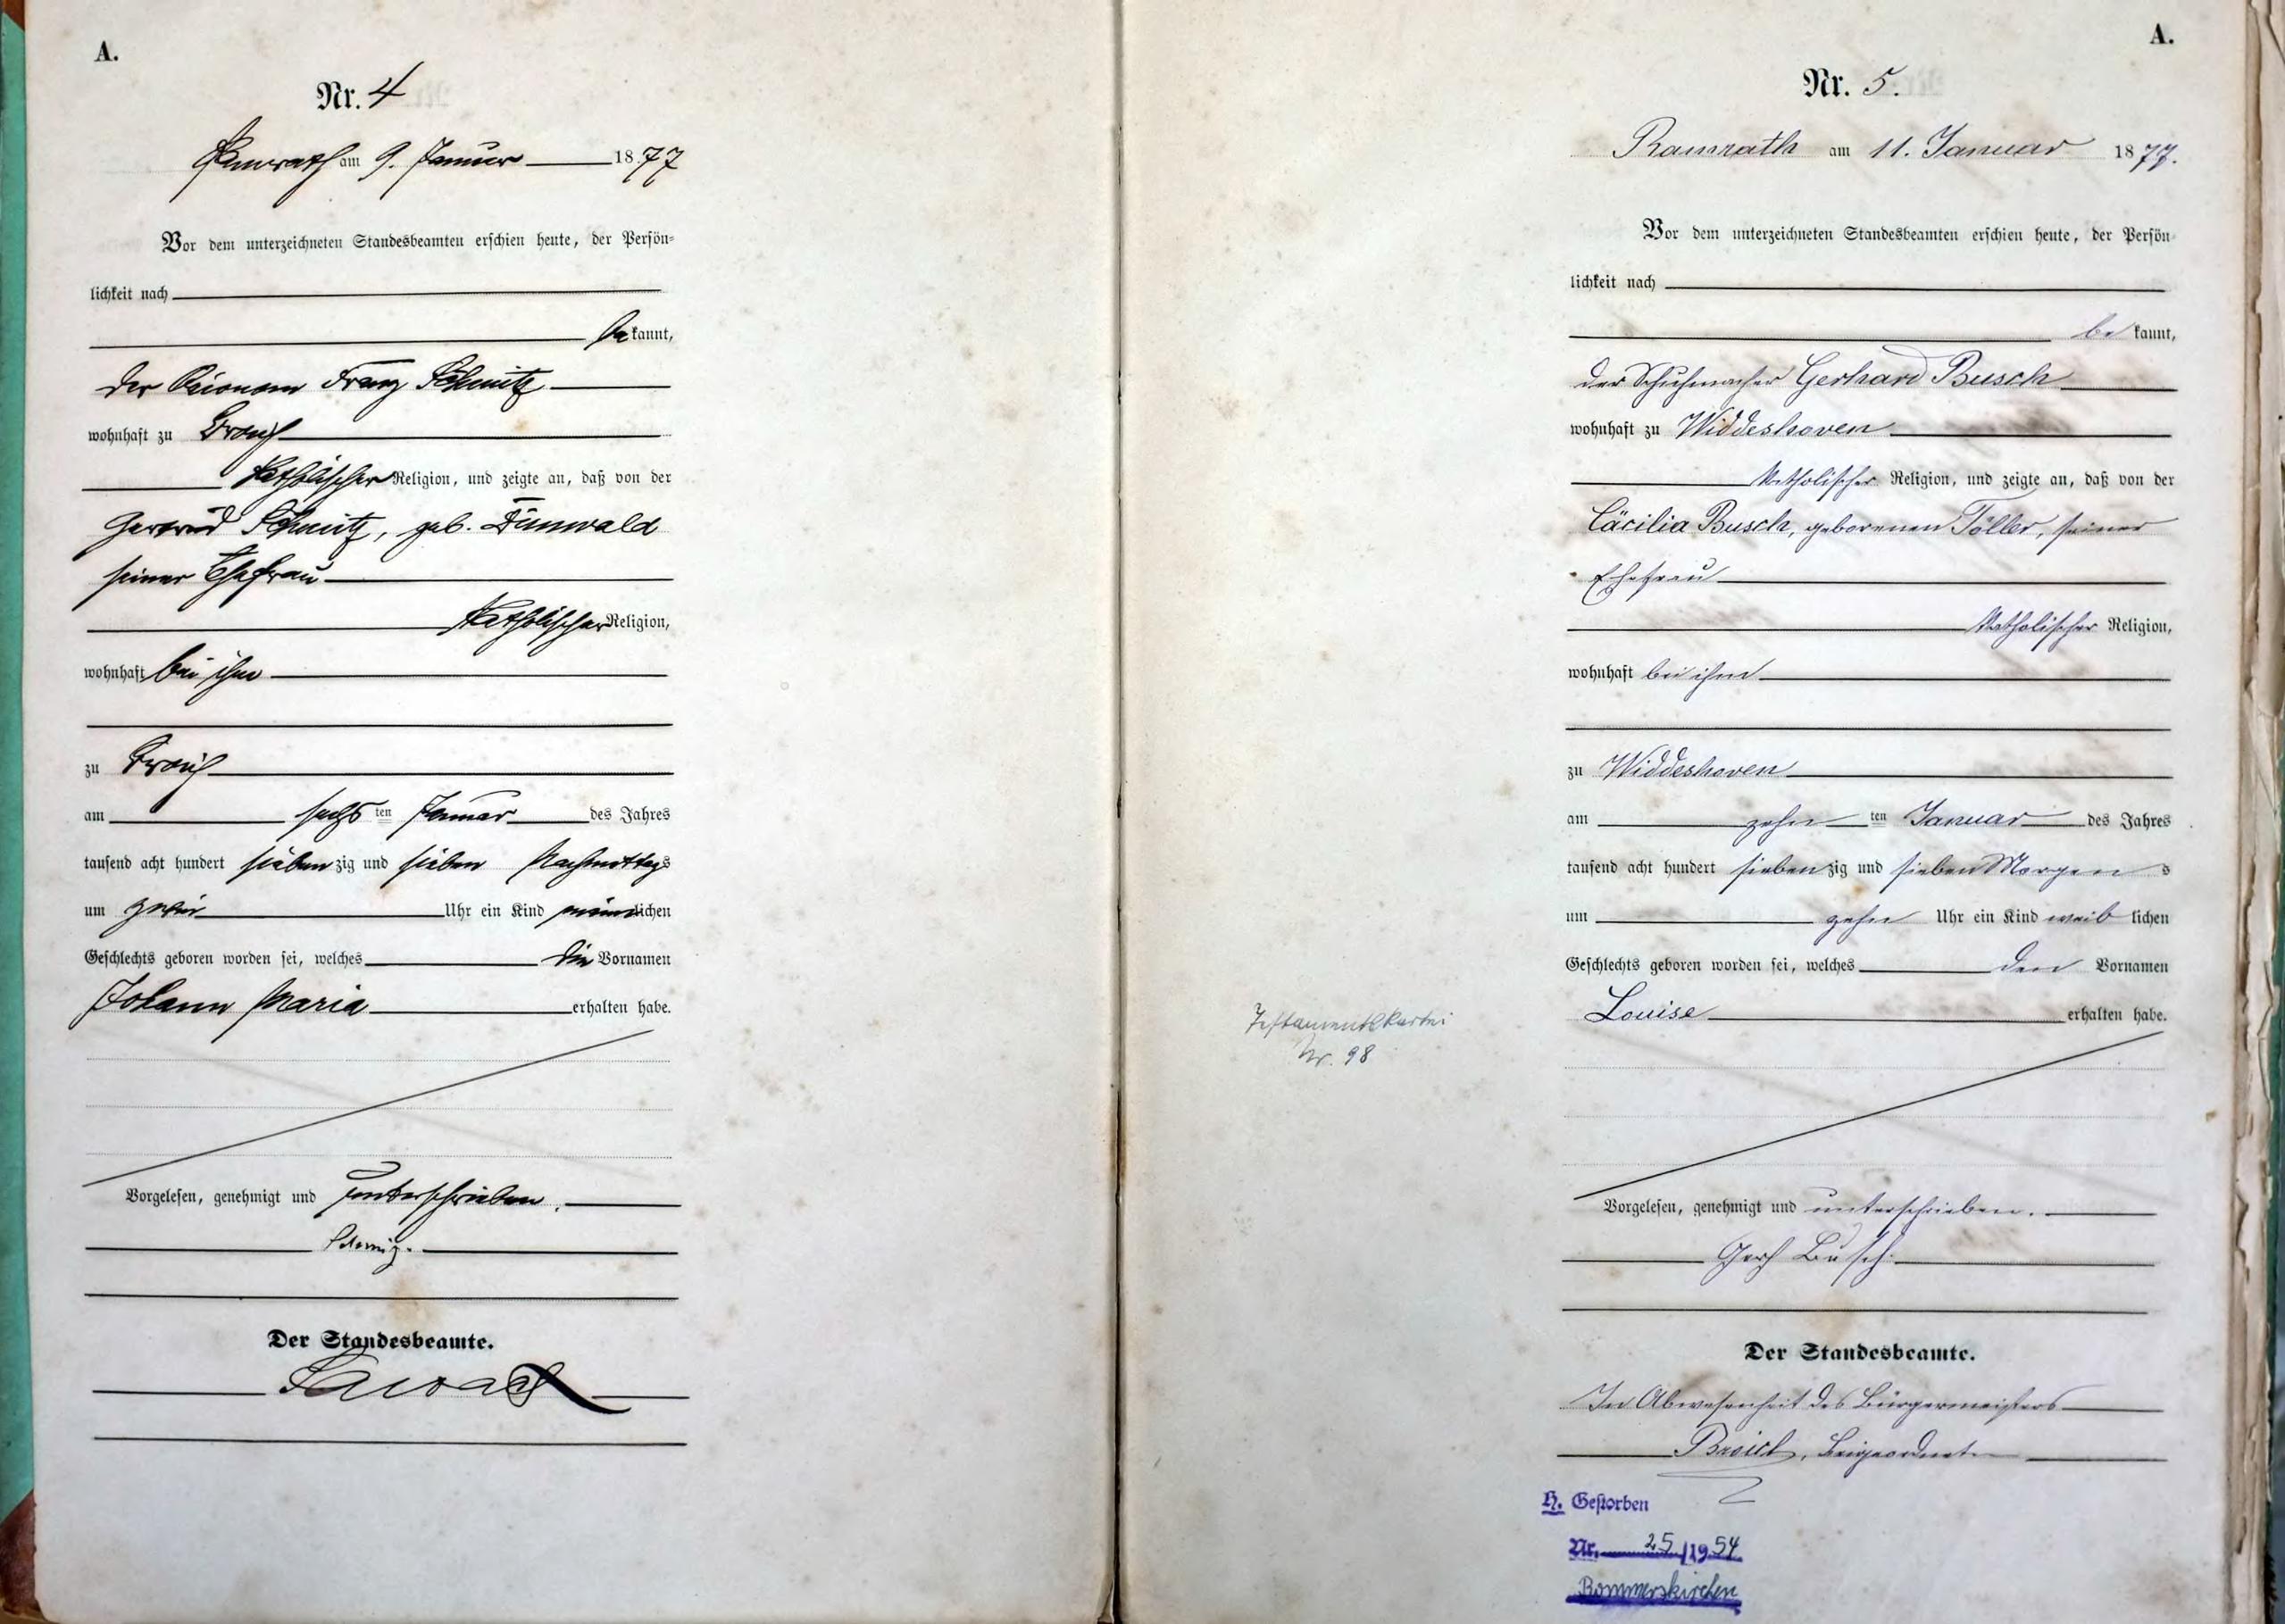 A.
Nr. 4
Ramrath am 9. Januar 1877
Vor dem unterzeichneten Standesbeamten erschien heute, der Persön-
lichkeit nach
bekannt,
der Oeconom Franz Schmitz
wohnhaft zu Broich
katholischer Religion, und zeigte an, daß von der
Gertrud Schmitz, geb. Dünwald
seiner Ehefrau
katholischer Religion,
wohnhaft bei ihm
zu Broich
am sechs ten Januar des Jahres
tausend acht hundert siebenzig und sieben Nachmittags
um zwei Uhr ein Kind männlichen
Geschlechts geboren worden sei, welches die Vornamen
Johann Maria erhalten habe.
Vorgelesen, genehmigt und unterschrieben.
Der Standesbeamte.
A.
Nr. 5.
Ramrath am 11. Januar 1877.
Vor dem unterzeichneten Standesbeamten erschien heute, der Persön-
lichkeit nach
bekannt,
der Schuhmacher Gerhard Busch
wohnhaft zu Widdeshoven
katholischer Religion, und zeigte an, daß von der
Cäcilia Busch, geborenen Töller, seiner
Ehefrau
katholischer Religion,
wohnhaft bei ihm
zu Widdeshoven
am zehn ten Januar des Jahres
tausend acht hundert siebenzig und sieben Morgens
um zehn Uhr ein Kind weiblichen
Geschlechts geboren worden sei, welches den Vornamen
Louise erhalten habe.
Testamentskartei
Nr. 98
Vorgelesen, genehmigt und unterschrieben.
Gerh Busch.
Der Standesbeamte.
In Abwesenheit des Bürgermeisters
Broich, Beigeordneter
H. Gestorben
Nr. 25/1954
Rommerskirchen